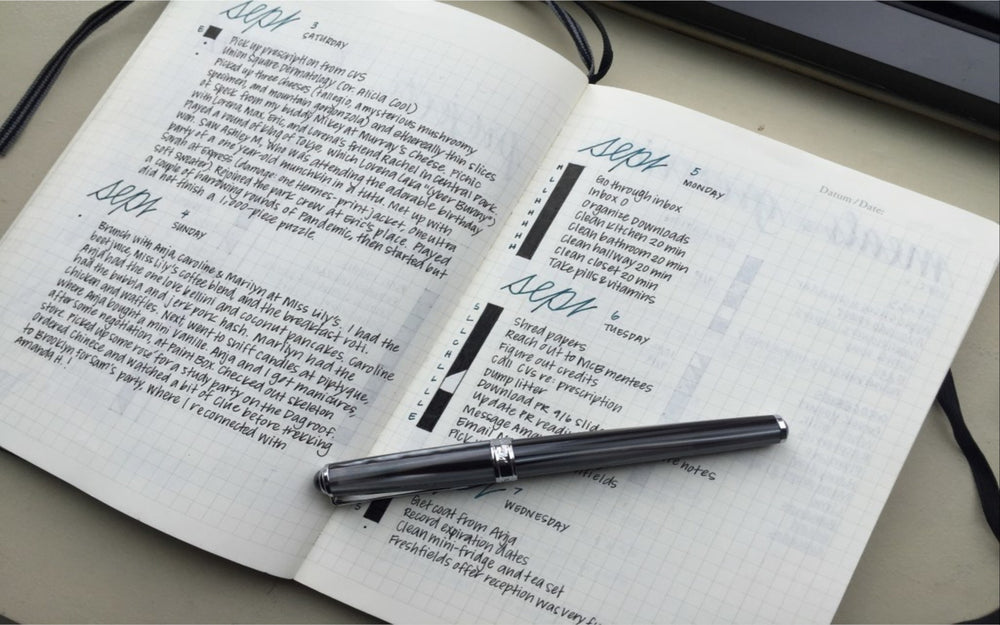 sept 3
SATURDAY
E
Pick up prescription from CVS
Union Square Dermatology (or Alicia Cool)
Picked up three cheeses (tallegio, a mysterious mushroomy
specimen, and mountain gorgonzola) and ethereally thin slices
of speck from my buddy Mikey at Murray's Cheese. Picnic
with Lorena, Max, Eric and Lorena's friend Rachel in Central Park.
Played a round of King of Tokyo, which Lorena (aka "Cyber Bunny")
won. Saw Ashley M, who was attending the adorable birthday
party of a one year-old munchkin in a tutu. Met up with
Sarah at Express (damage: one Hermes-print jacket, one ultra
soft sweater). Rejoined the park crew at Eric's place. Played
a couple of harrowing rounds of Pandemic, then started but
did not finish a 1,000-piece puzzle.
sept 4
SUNDAY
Brunch with Anja, Caroline & Marilyn at Miss Lily's. I had the
beet juice, Miss Lily's coffee blend, and the breakfast roti.
Anja had the one love bellini and coconut pancakes, Caroline
had the bubbla and jerk pork hash. Marilyn had the
chicken and waffles. Next went to sniff candles at Diptyque,
where Anja bought a mini Vanille. Anja and I get manicures,
after some negotiation, at Paint Box. Checked out skeleton
store. Picked up some rose for a study party on the Dag roof.
Ordered Chinese and watched a bit of Clue before trekking
to Brooklyn for Sam's party. Where I reconnected with
Amanda H!
Datum / Date:
sept 5
MONDAY
Go through inbox
Inbox 0
Organize Downloads
Clean kitchen 20 min
Clean bathroom 20 min
Clean hallway 20 min
Clean closet 20 min
Take pills & vitamins
sept 6
TUESDAY
Shred papers
Reach out to NCB mentees
Figure out credits
Call CVS re: prescription
Dump litter
Download PR 9/6 slides
Update PR
Message
Email
Pick
notes
7
WEDNESDAY
Get coat from Anja
Record expiration dates
Clean mini-fridge and tea set
Freshfields offer reception was very